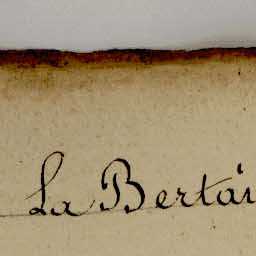 La Bertai